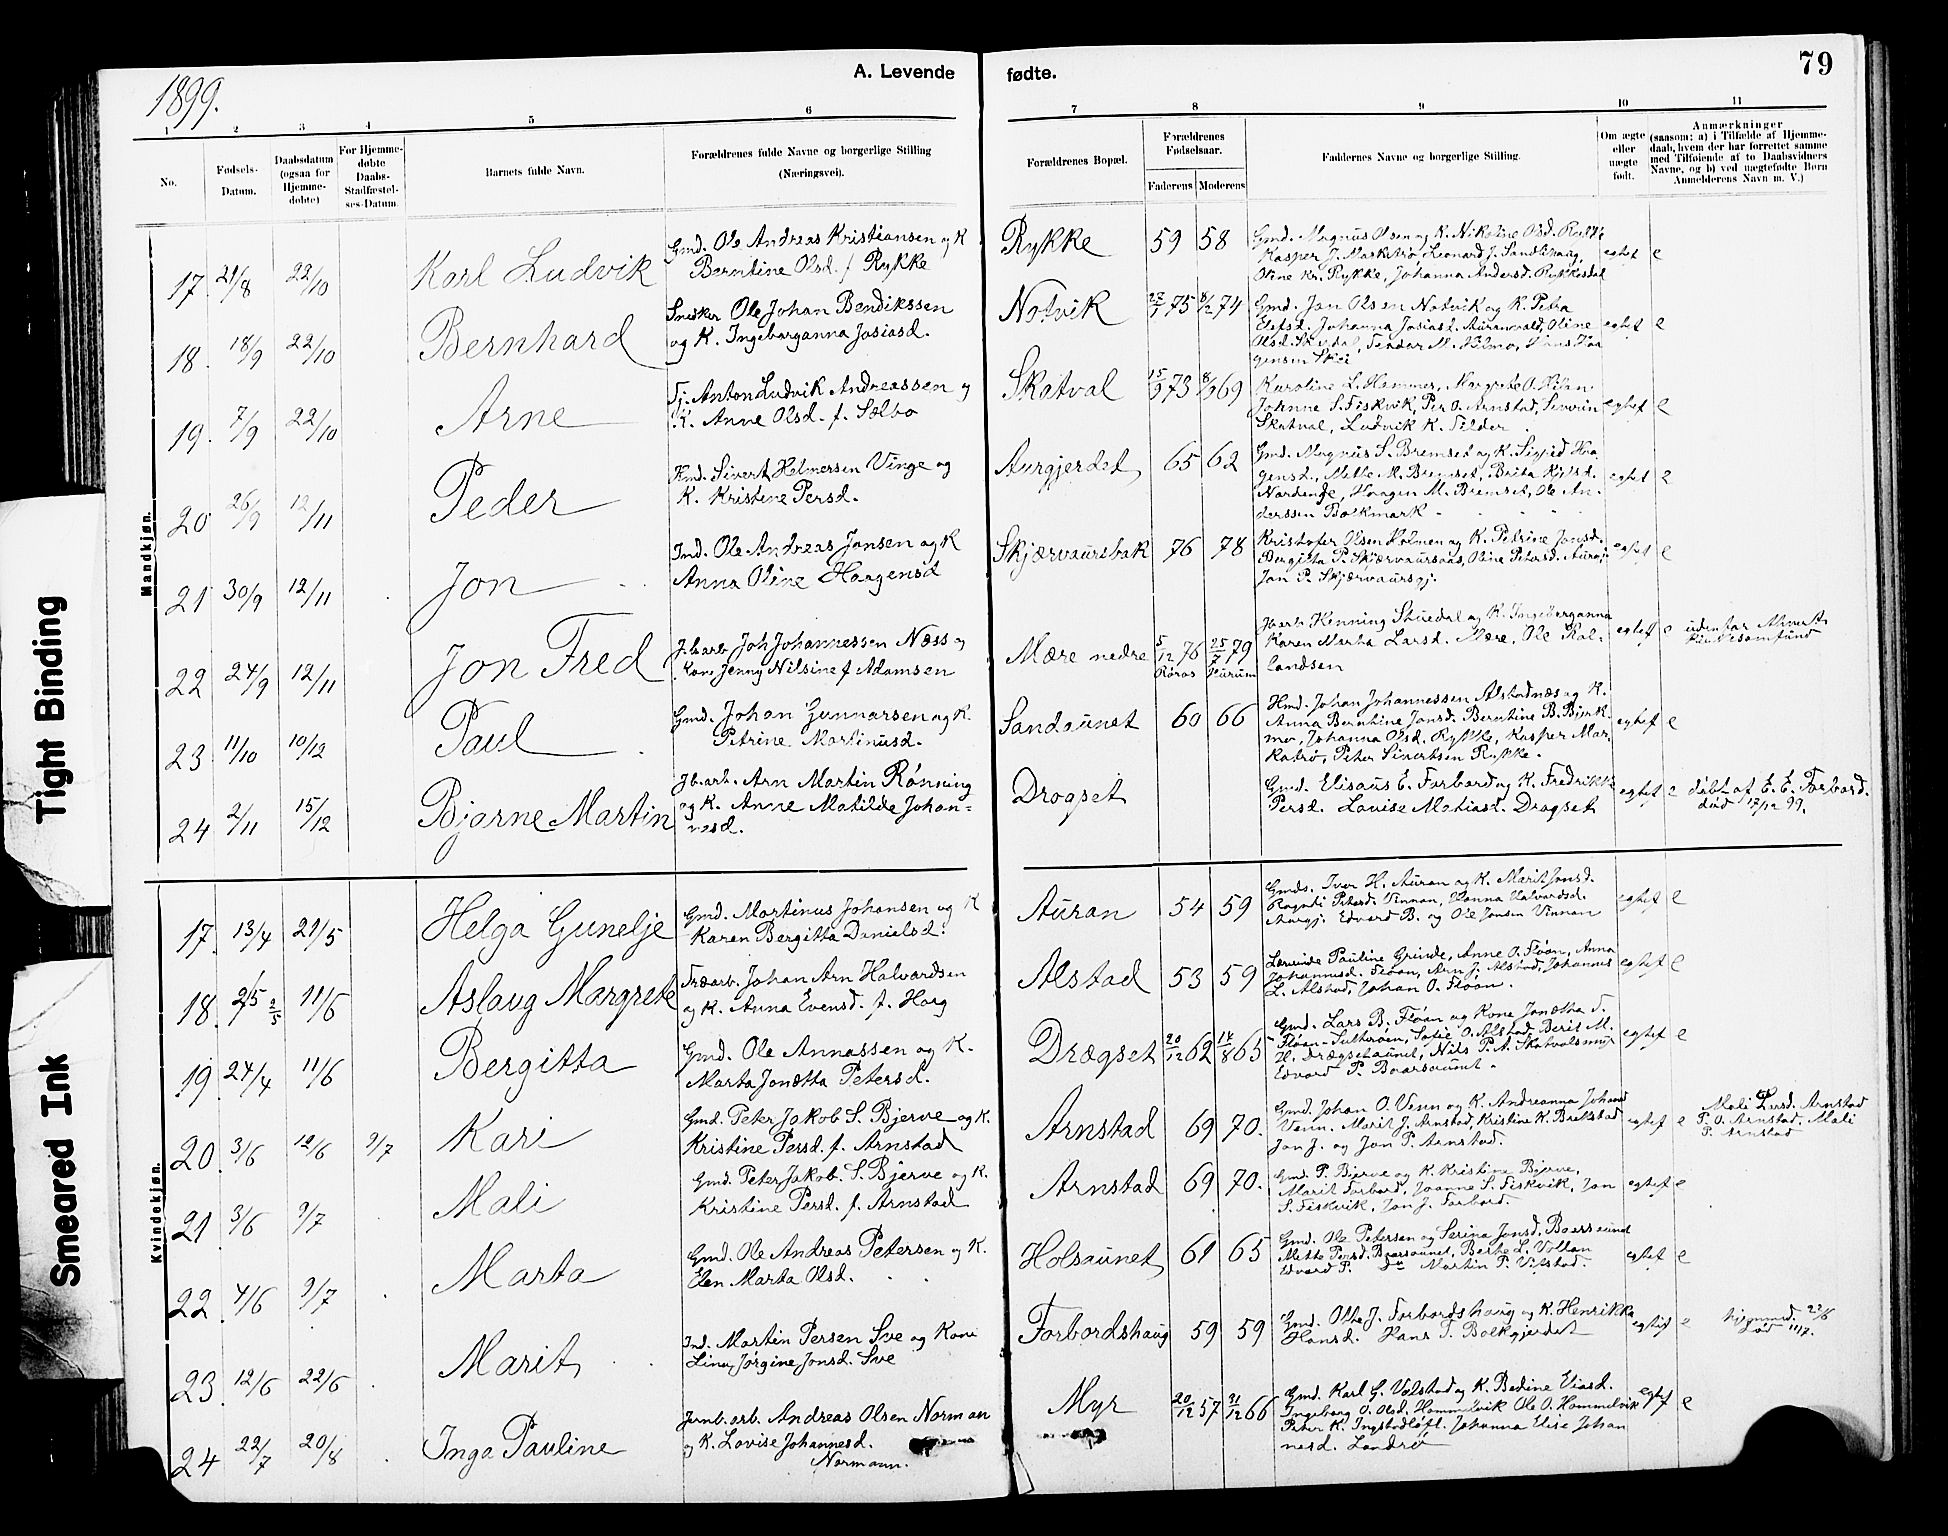 Tight Binding
Smeared Ink
1899.
A. Levende fødte.
79
1 2 3 4 5 6 7 8 9 10 11
No.
Fødsels-Datum.
Daabsdatum (ogsaa for Hjemme-døbte)
For Hjemme-døbte Daabs-Stadfæstel-ses-Datum.
Barnets fulde Navn.
Forældrenes fulde Navne og borgerlige Stilling (Næringsvei).
Forældrenes Bopæl.
Forældrenes Fødselsaar.
Faderens Moderens
Faddernes Navne og borgerlige Stilling.
Om ægte eller uægte født.
Anmærkninger (saasom: a) i Tilfælde af Hjemme-daab, hvem der har forrettet samme med Tilføiende af to Daabsvidners Navne, og b) ved uægtefødte Børn Anmelderens Navn m. V.)
Mandkjøn.
17. 21/8 22/10 Karl Ludvik
Gmd. Ole Andreas Kristiansen og K
Berntine Olsd. f. Rykke
Rykke 59 58
Gmd. Magnus Olsen og K. Nikoline Olsd. Rykke
Kasper J. Markatrø, Leonard J. Sandhaug,
Oline Kr. Rykke, Johanna Andersd. Rykkesdal
egtef e
18. 18/9 22/10 Bernhard
Snedker Ole Johan Bendikssen
og K. Ingeborganna Josiasd.
Notvik 75 8/12 74
Gmd. Jon Olsen Notvik og K. Petra
Elefsd. Johanna Josiasd. Auranvald, Oline
egtef e
19. 7/9 22/10 Arne
Tj. Anton Ludvik Andreassen og
K. Anne Olsd. f. Sælbo
Skatval 15/9 73 8/9 69
Karoline L. Hammer, Margrete O.
Johnne S. Fiskvik, Per O. Arnstad, Severin
Skatval, Ludvik K. Felder.
egtef e
20 26/9 12/11 Peder
Hmd. Sivert Helmersen Vinge og
K. Kristine Persd.
Aurgjerdet 65 62
Gmd. Magnus S. Bremset og K. Sigrid Haa
gensd., Mette M. Bremset, Brita
Nordenge, Haagen M. Bremset, Ole An.
derssen Bolkmark
egtef e
21 30/9 12/11 Jon
Ind. Ole Andreas Jonsen og K
Anna Oline Haagensd
Skjærvaursbak 76 78
Kristofer Olsen Holmen og K. Petrine Jonsd.
Bergitta P. Skjærvaursaas, Oline Petersd. Aurgj.
Jon P. Skjærvaursgj.
egtef e
22 24/9 12/11 Jon Fred
Jb.arb. Joh Johannessen Næss og
Kone Jenny Nilsine f Adamsen
Mære nedre 5/12 76 Røros 25/7 79 Hurum
Jb.arb. Henning Stuedal og K. Ingeborganna
Karen Marta Larsd. Mære, Ole Rol-
landsen
egtef e
udenfor
23 11/10 10/12 Paul
Gmd. Johan Gunnarsen og K.
Petrine Martinusd.
Sandaunet 60 66
Hmd. Johan Johannessen Alstadnæs og K.
Anna Berntine Jonsd. Berntine B. Bjerk
mo, Johanna Olsd. Rykke, Kasper Mar
katrø, Peter Sivertsen Rykke.
egtef e
24 2/11 15/12 Bjarne Martin
Jb.arb. Arn Martin Rønning
og K. Anne Matilde Johan=
nesd.
Drogset
Gmd. Elisæus E. Forbord og K. Fredrikke
Persd. Louise Matiasd. Drogset
egtef e
døbt af E. E. Forbord.
død 17/12 99.
Kvindekjøn.
17. 13/4 21/5 Helga Gunelje
Gmd. Martinus Johansen og K
Karen Bergitta Danielsd.
Auran 54 59
Gmds. Iver H. Auran og K. Marit Jonsd.
Ragndi Petersd. Vinnan, Hanna Halvardsd.
Aurgj. Edvard B. og Ole Jonsen Vinnan
egtef e
18. 2/5 11/6 Aslaug Margrete
Træarb. Johan Arn Halvardsen
og K. Anna Evensd. f. Haug
Alstad 53 59
Lærerinde Pauline Grinde, Anne O. Fløan, Anna
Johannesd. Fløan, Arn J. Alstad, Johannes
L. Alstad, Johan O. Fløan.
egtef e
19 24/4 11/6 Bergitta
Gmd. Ole Annæssen og K.
Marta Jonetta Petersd.
Drægset 20/12 62 14/8 65
Gmd. Lars B. Fløan og Kone Jonetta d.
Fløan-Sulterøen, Sofie O. Alstad, Berit M.
H. Drægsetaunet, Nils P. A. Skatvalsmyr
Edvard P. Baarsaunet.
egtef e
20 3/6 12/6 9/7 Kari
Gmd. Peter Jakob S. Bjerve og K.
Kristine Persd. f. Arnstad
Arnstad 69 70.
Gmd. Johan O. Venn og K. Andreanna Johansd
Venn. Marit J. Arnstad, Kristine K. Bratstad
Jon J. og Jon P. Arnstad.
egtef e
Mali Larsd. Arnstad
P. O. Arnstad. Mali
P. Arnstad
21 3/6 9/7 Mali
Gmd. Peter Jakob. S. Bjerve og K.
Kristine Persd. f. Arnstad
Arnstad 69 70.
Gmd. P. Bjerve og K. Kristine Bjerve,
Marit Forbord, Joanne S. Fiskvik, Jon
S. Fiskvik, Jon J. Forbord.
egtef e
22 4/6 9/7 Marta
Gmd. Ole Andreas Petersen og K.
Elen Marta Olsd.
Holsaunet 61 65
Gmd. Ole Petersen og Serina Jonsd. Baarsaunet
Mette Persd. Baarsaunet, Berte L. Vollan
Edvard P. do Martin P. Vikstad.
egtef e
23 12/6 22/6 Marit
Ind. Martin Persen Sve og Kone
Lina Jørgine Jonsd. Sve
Forbordshaug 59 59
Gmd. Otte J. Forbordshaug og K. Henrikke
Hansd. Hans T. Bolkgjerdet
egtef e
hjemmed. 23/6
død 11/7.
24 22/7 20/8 Inga Pauline
Jernb. arb. Andreas Olsen Norman
og K. Lovise Johannesd.
Normann.
Myr 20/12 57 21/12 66
Gmd. Karl G. Volstad og K. Bedine Eliasd.
Ingeborg O. Olsd. Hommelvik Ole O. Hommelvik
Peter K. Ingstadløft. Johanna Elise Johan
nesd. Landrø
egtef e